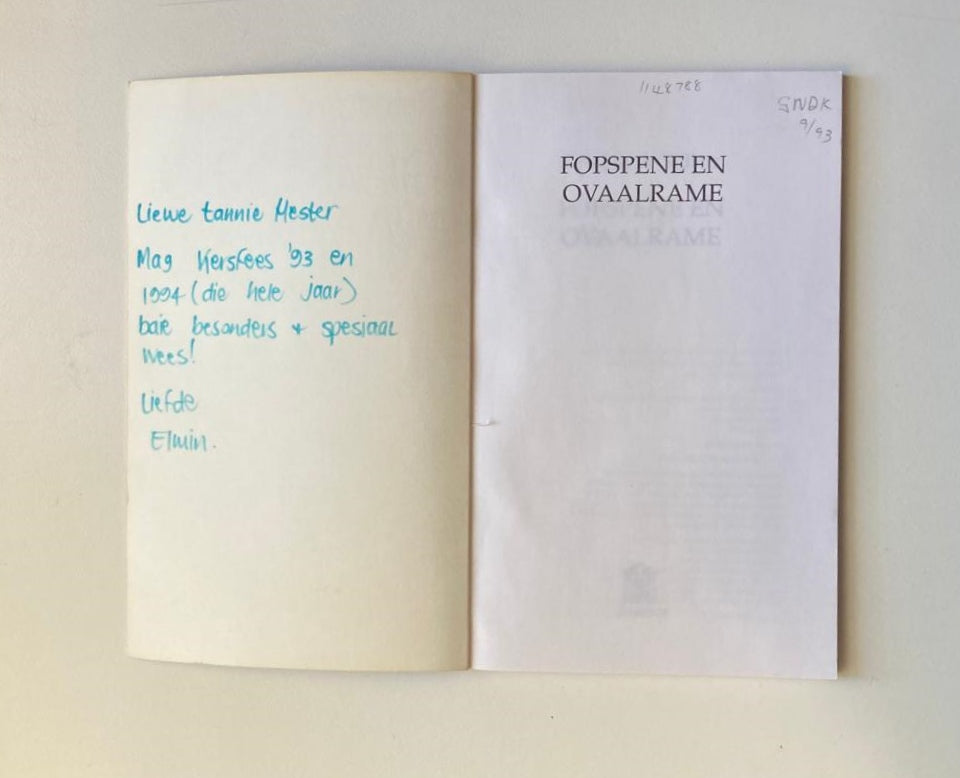 Liewe tannie Hester
Mag Kersfees '93 en
1994 (die hele jaar)
baie besonders + spesiaal
wees!
Liefde
Elmin.
1148788
SNDK
9/93
FOPSPENE EN
OVAALRAME